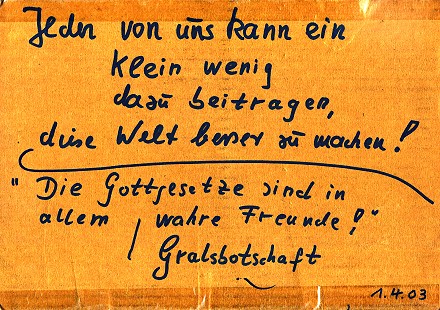 Jeder von uns kann ein
klein wenig
dazu beitragen,
diese Welt besser zu machen!
"Die Gottgesetze sind in
allem wahre Freunde!"
Gralsbotschaft
1.4.03